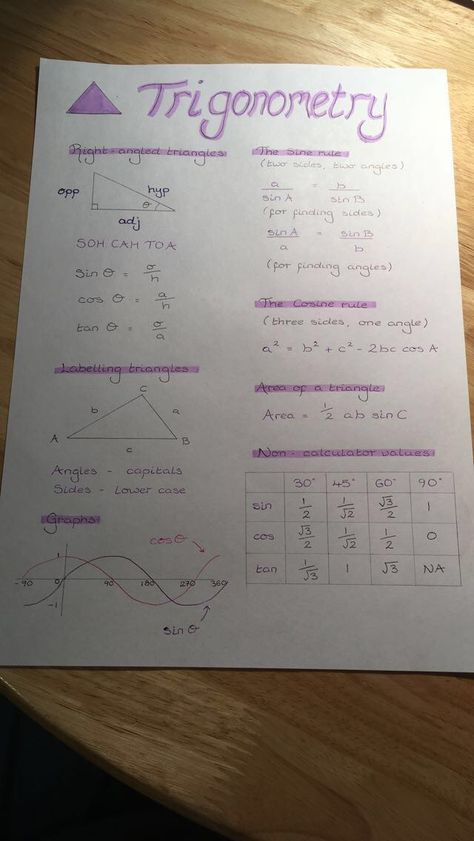 Trigonometry
Right-angled triangles
opp
hyp
θ
adj
SOH CAH TOA
sin θ = o/h
cos θ = a/h
tan θ = o/a
Labelling triangles
C
b
a
A
B
c
Angles - capitals
Sides - lower case
Graphs
cos θ
1
-90 0 90 180 270 360
-1
sin θ
The Sine rule
(two sides, two angles)
a/sin A = b/sin B
(for finding sides)
sin A/a = sin B/b
(for finding angles)
The Cosine rule
(three sides, one angle)
a² = b² + c² - 2bc cos A
Area of a triangle
Area = 1/2 ab sin C
Non-calculator values
30° 45° 60° 90°
sin 1/2 1/√2 √3/2 1
cos √3/2 1/√2 1/2 0
tan 1/√3 1 √3 NA